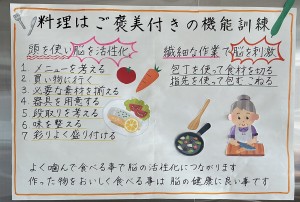 料理はご褒美付きの機能訓練
頭を使い脳を活性化
1 メニューを考える
2 買い物に行く
3 必要な素材を揃える
4 器具を用意する
5 段取りを考える
6 味を整える
7 彩りよく盛り付ける
繊細な作業で脳を刺激
包丁を使って食材を切る
指先を使って包む こねる
よく噛んで食べる事で脳の活性化につながります
作った物をおいしく食べる事は 脳の健康に良い事です